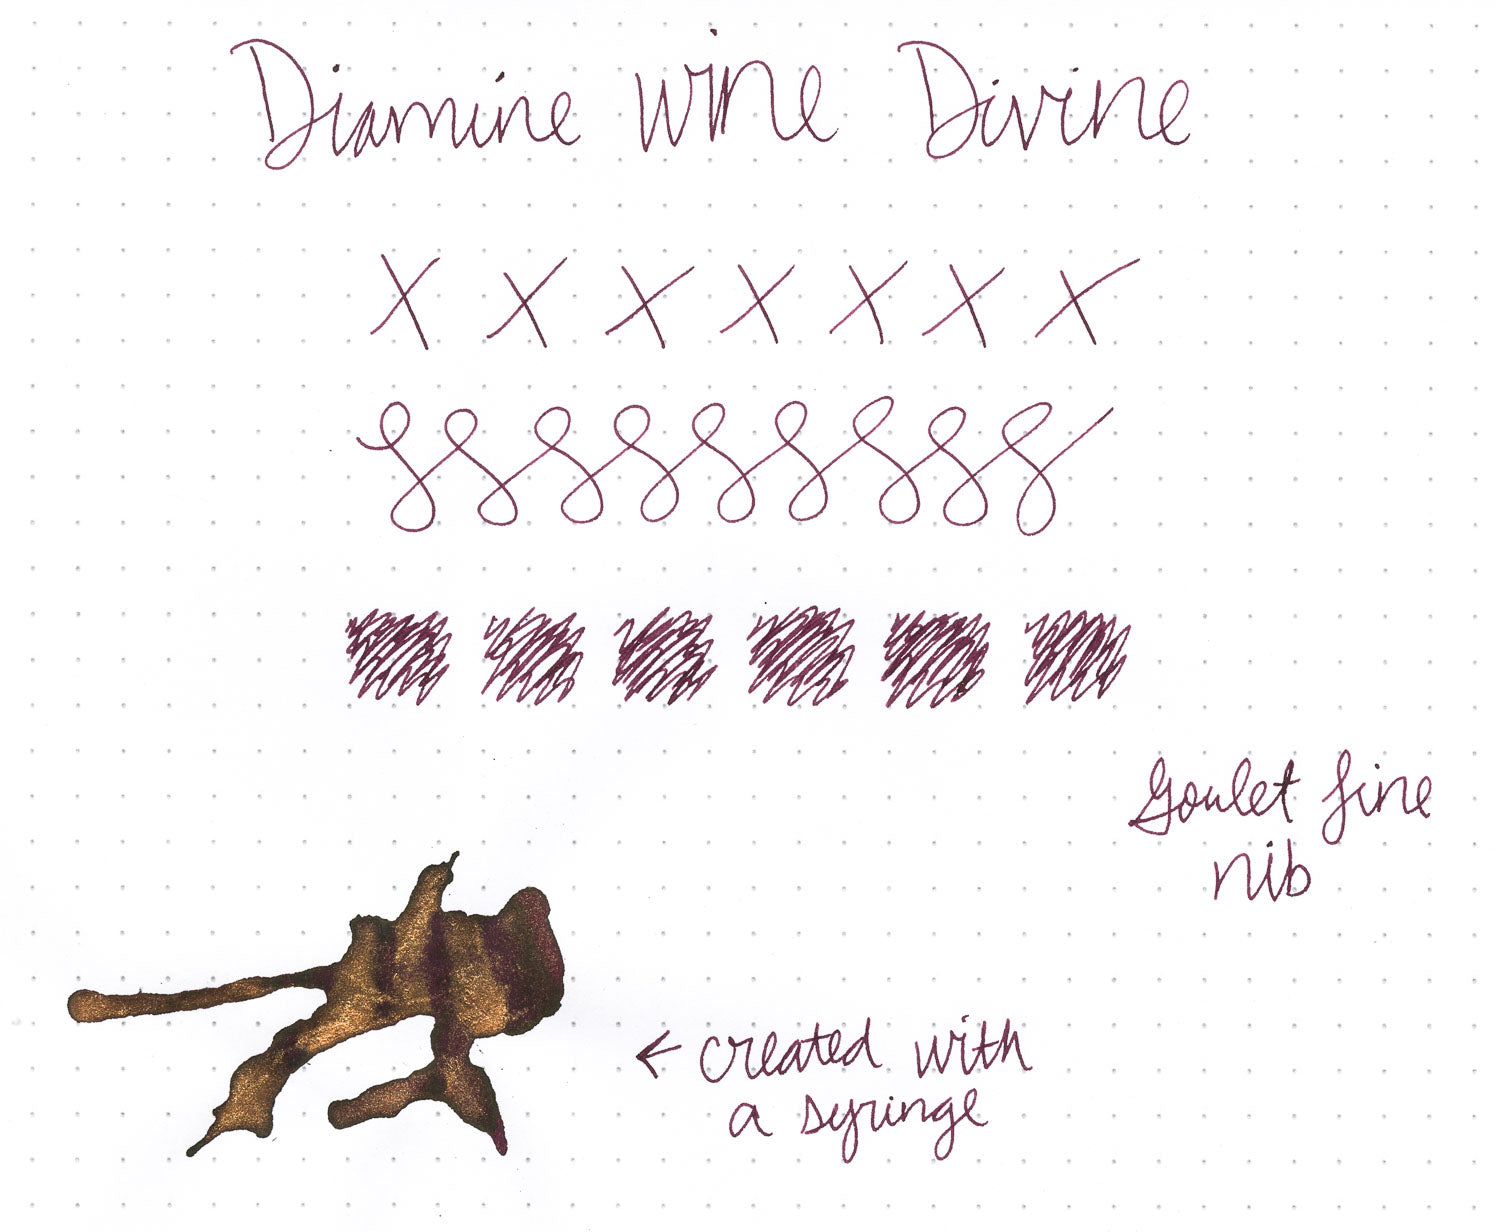 Diamine Wine Divine
x x x x x x x
Goulet fine
nib
← created with
a syringe